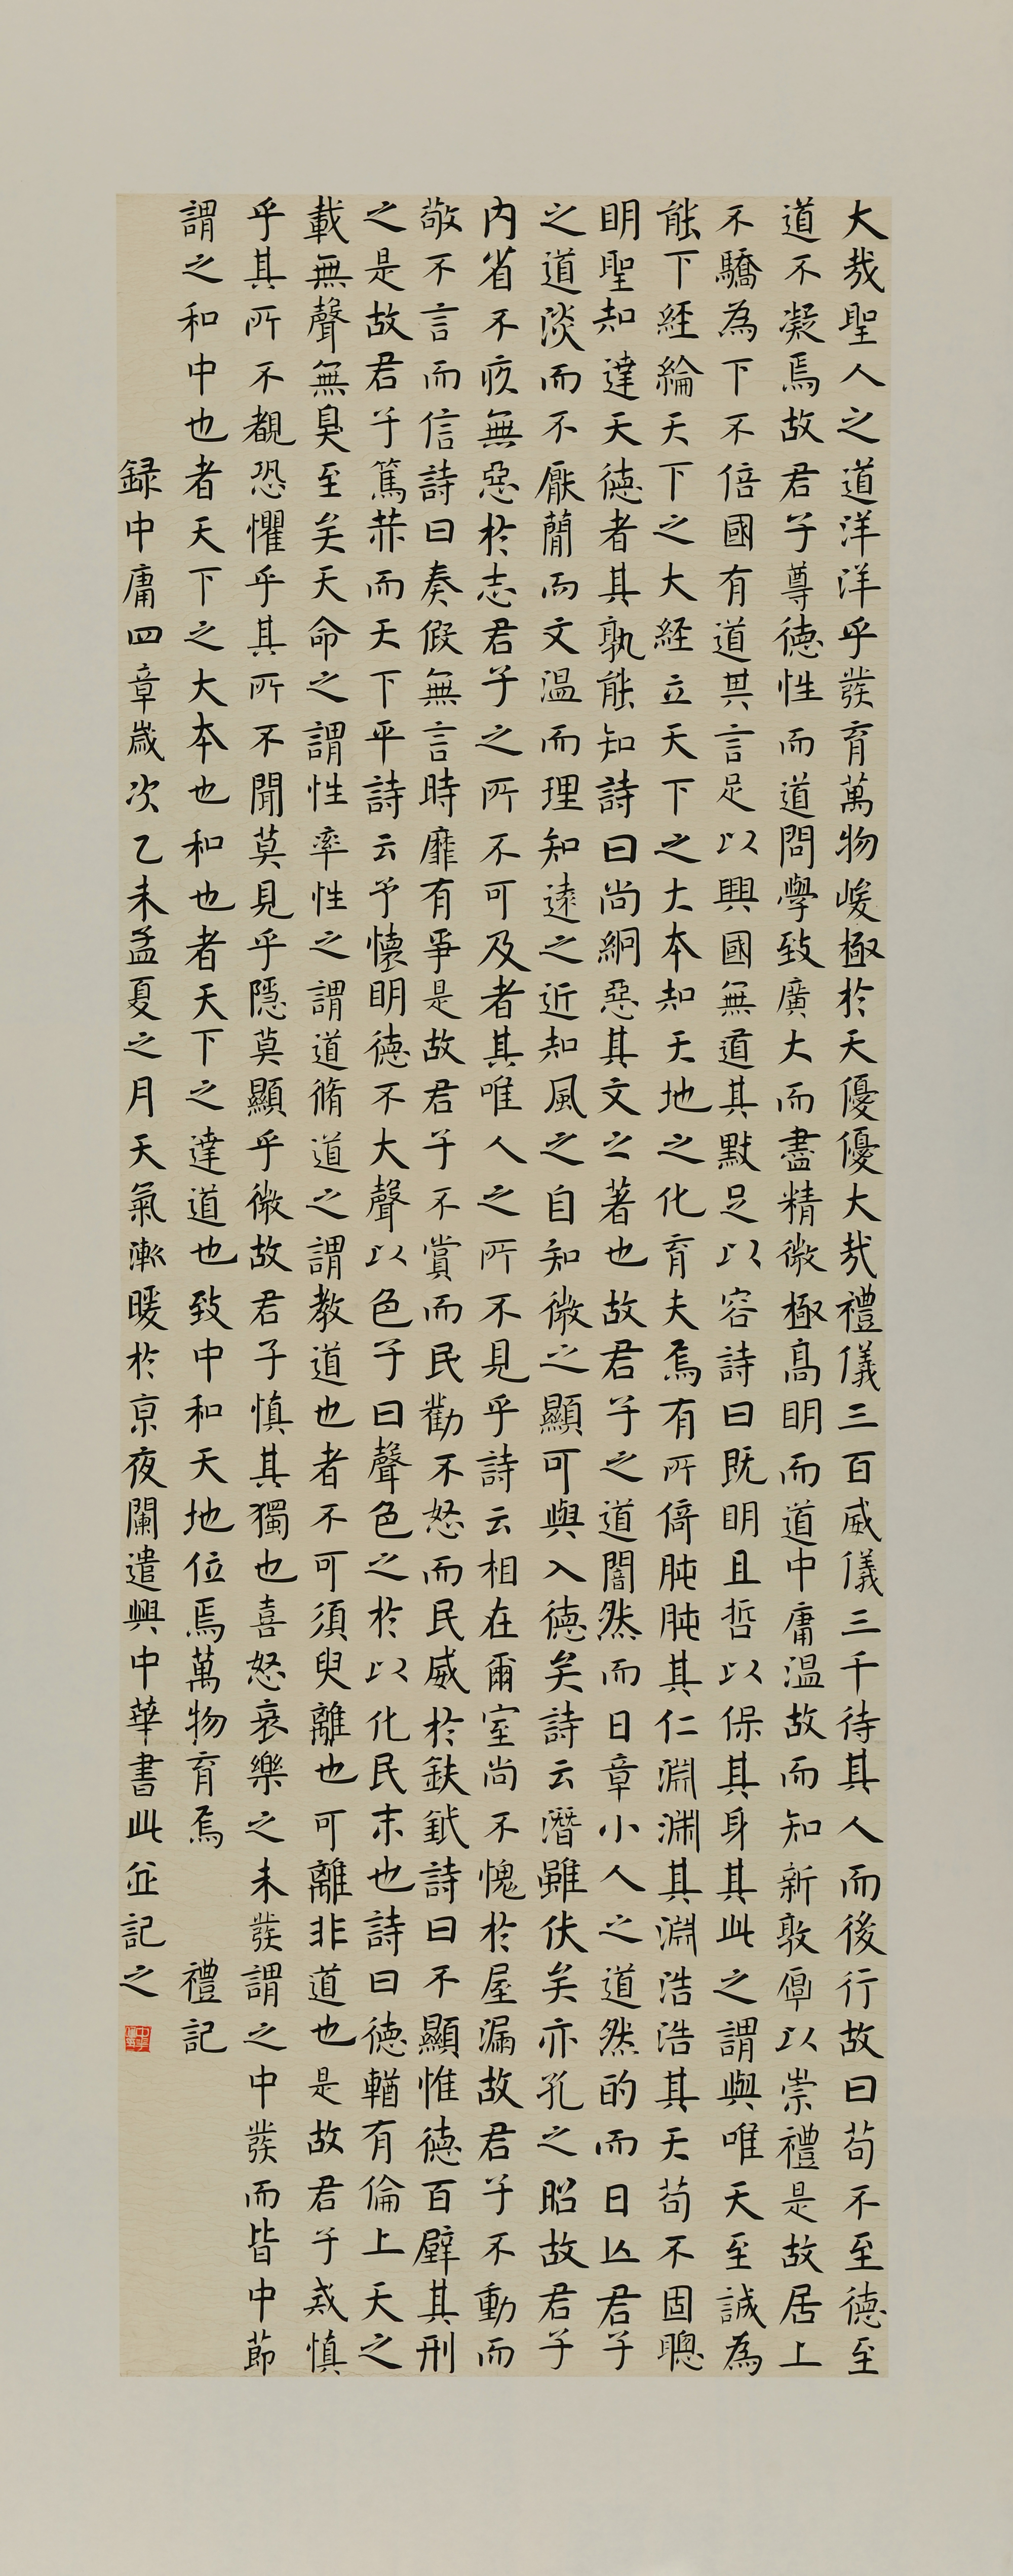 大哉聖人之道洋洋乎發育萬物峻極於天優優大哉禮儀三百威儀三千待其人而後行故曰苟不至德至
道不凝焉故君子尊德性而道問學致廣大而盡精微極高明而道中庸温故而知新敦厚以崇禮是故居上
不驕為下不倍國有道其言足以興國無道其默足以容詩曰既明且哲以保其身其此之謂與唯天至誠為
能下經綸天下之大經立天下之大本知天地之化育夫焉有所倚肫肫其仁淵淵其淵浩浩其天苟不固聰
明聖知達天德者其孰能知詩曰尚絅惡其文之著也故君子之道闇然而日章小人之道然的而日亾君子
之道淡而不厭簡而文温而理知遠之近知風之自知微之顯可與入德矣詩云潛雖伏矣亦孔之昭故君子
内省不疚無惡於志君子之所不可及者其唯人之所不見乎詩云相在爾室尚不愧於屋漏故君子不動而
敬不言而信詩曰奏假無言時靡有爭是故君子不賞而民勸不怒而民威於鈇鉞詩曰不顯惟德百辟其刑
之是故君子篤恭而天下平詩云予懷明德不大聲以色子曰聲色之於以化民末也詩曰德輶有倫上天之
載無聲無臭至矣天命之謂性率性之謂道脩道之謂教道也者不可須臾離也可離非道也是故君子戒慎
乎其所不覩恐懼乎其所不聞莫見乎隱莫顯乎微故君子慎其獨也喜怒哀樂之未發謂之中發而皆中節
謂之和中也者天下之大本也和也者天下之達道也致中和天地位焉萬物育焉 禮記
録中庸四章歲次乙未孟夏之月天氣漸暖於京夜闌遣興中華書此並記之